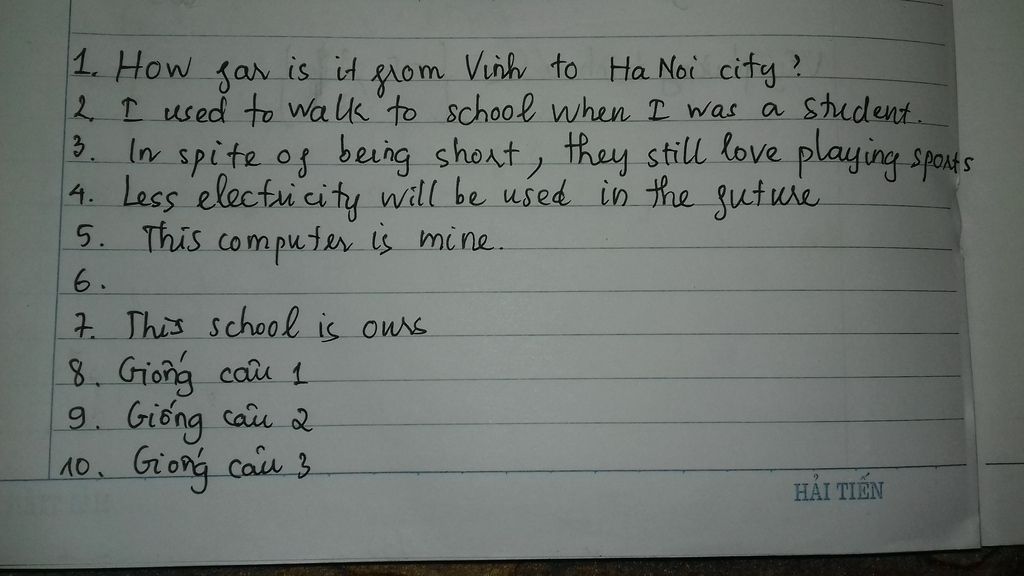 1. How far is it from Vinh to Ha Noi city?
2. I used to walk to school when I was a student.
3. In spite of being short, they still love playing sports
4. Less electricity will be used in the future
5. This computer is mine.
6.
7. This school is ours
8. Giống câu 1
9. Giống câu 2
10. Giống câu 3
HẢI TIẾN